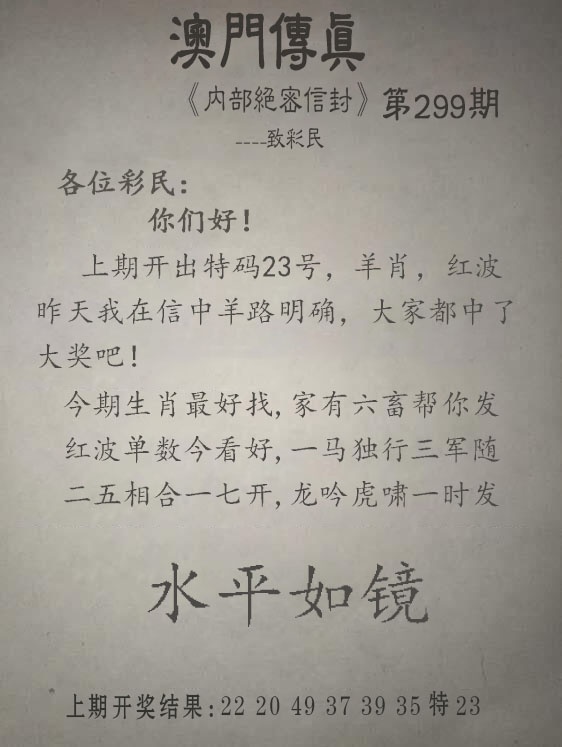 澳門傳眞
《内部絕密信封》第299期
----致彩民
各位彩民：
你们好！
上期开出特码23号，羊肖，红波
昨天我在信中羊路明确，大家都中了
大奖吧！
今期生肖最好找,家有六畜帮你发
红波单数今看好,一马独行三军随
二五相合一七开,龙吟虎啸一时发
水平如镜
上期开奖结果:22 20 49 37 39 35 特 23